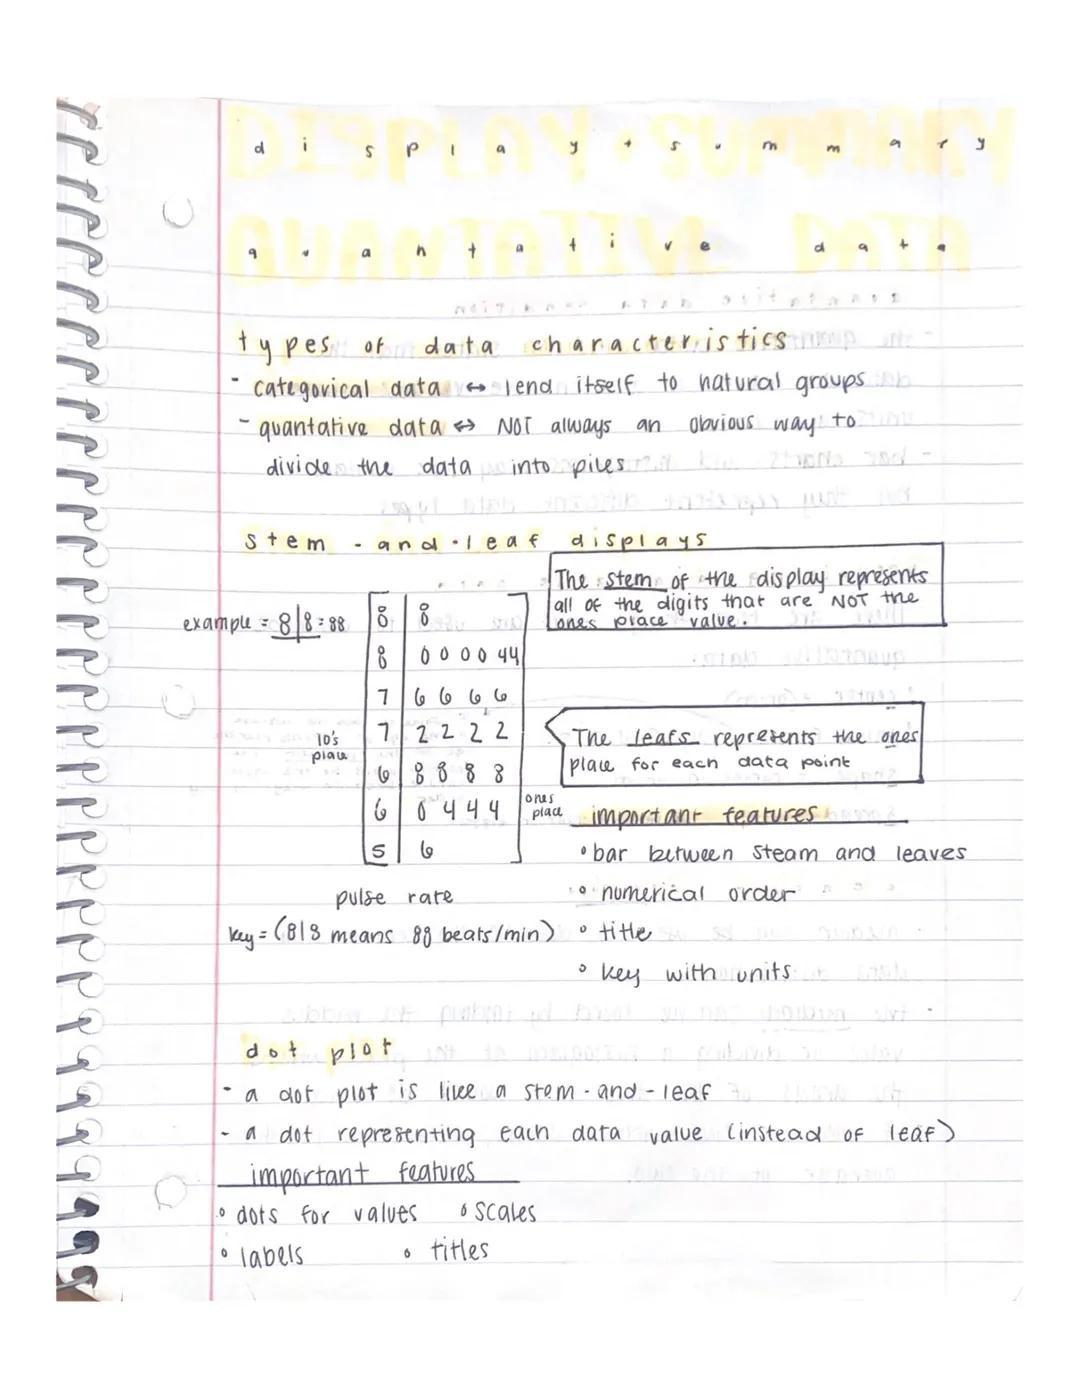 display + summary
quantative data
types of data characteristics
- categorical data ↔ lend itself to natural groups
- quantative data ↔ NOT always an obvious way to
divide the data into piles
stem-and-leaf displays
The stem of the display represents
all of the digits that are NOT the
ones place value.
example = 8|8=88
8 | 8
8 | 0 0 0 0 4 4
7 | 6 6 6 6
7 | 2 2 2 2
6 | 8 8 8 8
6 | 0 4 4 4
5 | 6
10's
place
ones
place
The leafs represents the ones
place for each data point
pulse rate
key = (8|8 means 88 beats/min)
important features
• bar between steam and leaves
• numerical order
• title
• key with units
dot plot
- a dot plot is like a stem-and-leaf
- a dot representing each data value (instead of leaf)
important features
• dots for values • scales
• labels • titles